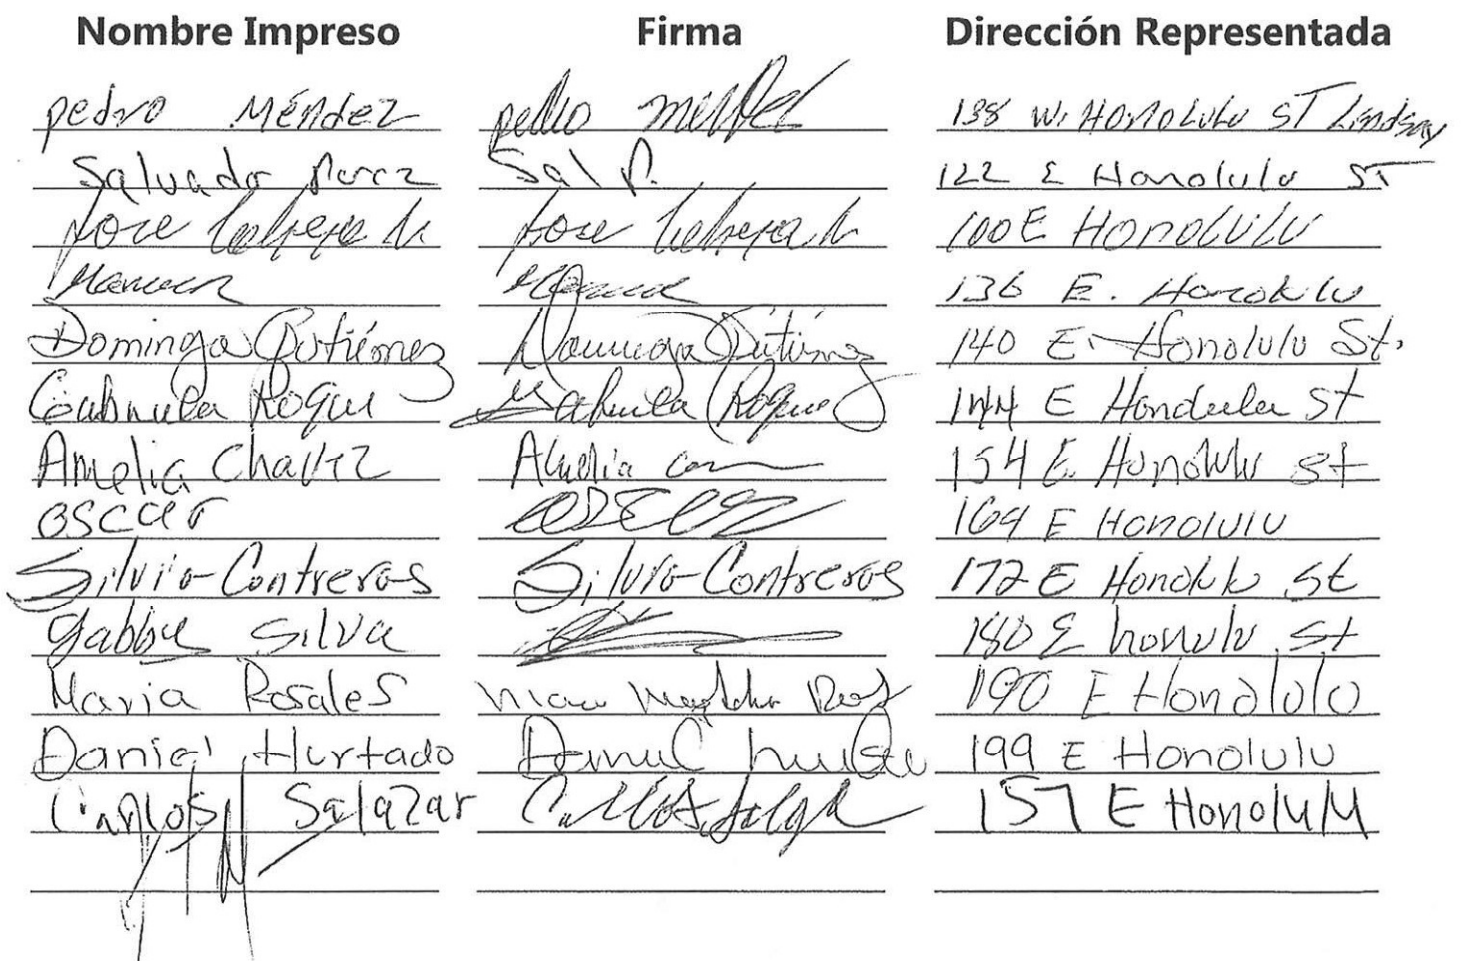 Nombre Impreso Firma Dirección Representada
pedro Méndez pedro 138 W. Honolulu ST Lindsay
Salvador Perez Sal P. 122 E Honolulu ST
Jose Jose 100 E Honolulu
Manuel Manuel 136 E. Honolulu
Dominga Gutiérrez Dominga Gutiérrez 140 E. Honolulu St.
Gabriela Roque Gabriela Roque 144 E Honolulu St
Amelia Chavez Amelia 154 E. Honolulu St
oscar 164 E Honolulu
Silvia Contreras Silvia Contreras 172 E Honolulu St
Gabby Silva 180 E honolulu St
Maria Rosales 190 E Honolulu
Daniel Hurtado Daniel 199 E Honolulu
Carlos Salazar Carlos 157 E Honolulu